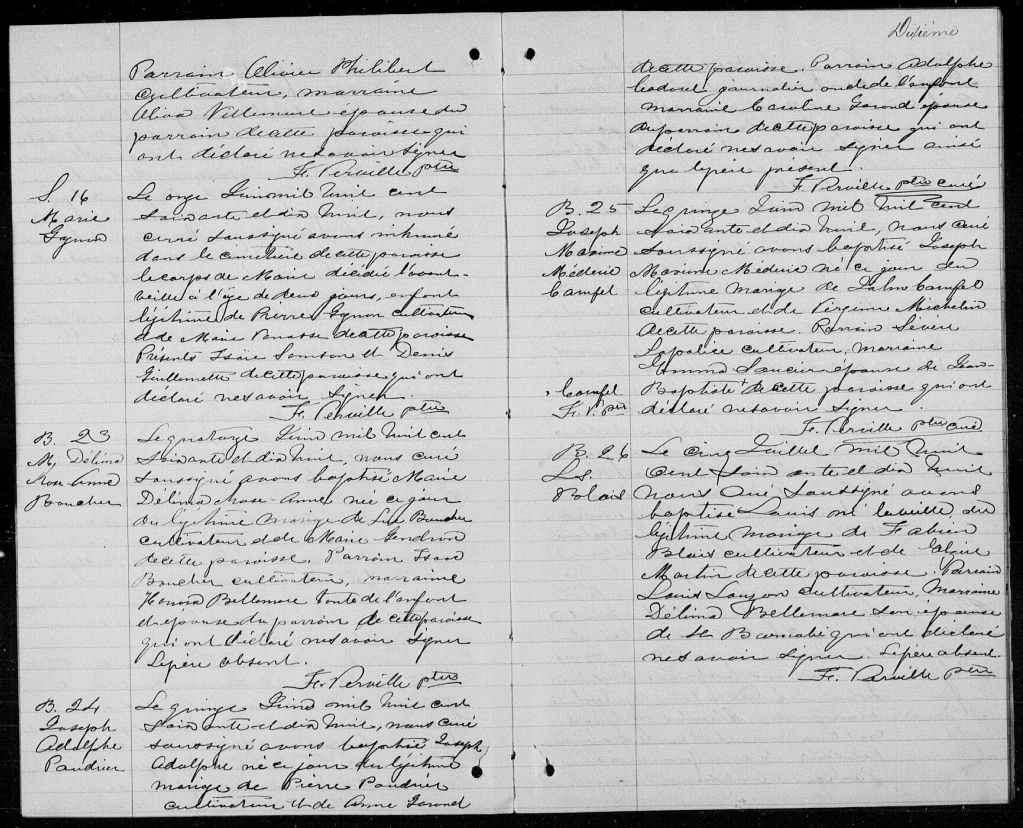 Parrain Olivier Philibert
cultivateur, marraine
Oliva Villemure épouse du
parrain de cette paroisse qui
ont déclaré ne savoir signer
F. Verville ptre
S. 16
Marie
Gignon
Le onze Juin mil huit cent
soixante et dix huit, nous
curé soussigné avons inhumé
dans le cimetière de cette paroisse
le corps de Marie décédée l'avant-
veille à l'âge de deux jours, enfant
légitime de Pierre Gignon cultivateur
et de Marie Vanasse de cette paroisse
Présents Isaïe Samson et Denis
Guillemette de cette paroisse qui ont
déclaré ne savoir signer
F. Verville ptre
B. 23
M. Délima
Rose-Anne
Boucher
Le quatorze Juin mil huit cent
soixante et dix huit, nous curé
soussigné avons baptisé Marie
Délima Rose-Anne née ce jour
du légitime mariage de Luc Boucher
cultivateur et de Marie Gendron
de cette paroisse. Parrain Isaac
Boucher cultivateur, marraine
Honora Bellemare tante de l'enfant
et épouse du parrain de cette paroisse
qui ont déclaré ne savoir signer
Le père absent.
F. Verville ptre
B. 24
Joseph
Adolphe
Paudrier
Le quinze Juin mil huit cent
soixante et dix huit, nous curé
soussigné avons baptisé Joseph
Adolphe né ce jour du légitime
mariage de Pierre Paudrier
cultivateur et de Anne
Dixième
de cette paroisse. Parrain Adolphe
journalier oncle de l'enfant
marraine Caroline épouse
du parrain de cette paroisse qui ont
déclaré ne savoir signer ainsi
que le père présent
F. Verville ptre curé
B. 25
Joseph
Maxime
Médéric
Campel
Le quinze Juin mil huit cent
soixante et dix huit, nous curé
soussigné avons baptisé Joseph
Maxime Médéric né ce jour du
légitime mariage de Campel
cultivateur et de Virginie Michelin
de cette paroisse. Parrain Sévère
Lapolice cultivateur, marraine
Emma Saucier épouse de Jean-
Baptiste + de cette paroisse qui ont
déclaré ne savoir signer.
Campel
F. V. ptre
F. Verville ptre curé
B. 26
Ls.
Blais
Le cinq Juillet mil huit
cent soixante et dix huit
nous curé soussigné avons
baptisé Louis né la veille, du
légitime mariage de Fabien
Blais cultivateur et de
Martin de cette paroisse. Parrain
Louis Lauzon cultivateur, Marraine
Délima Bellemare son épouse
de St Barnabé qui ont déclaré
ne savoir signer. Le père absent.
F. Verville ptre